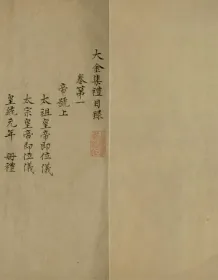 大金集禮目録
卷第一
帝號上
太祖皇帝即位儀
太宗皇帝即位儀
皇統元年 冊禮